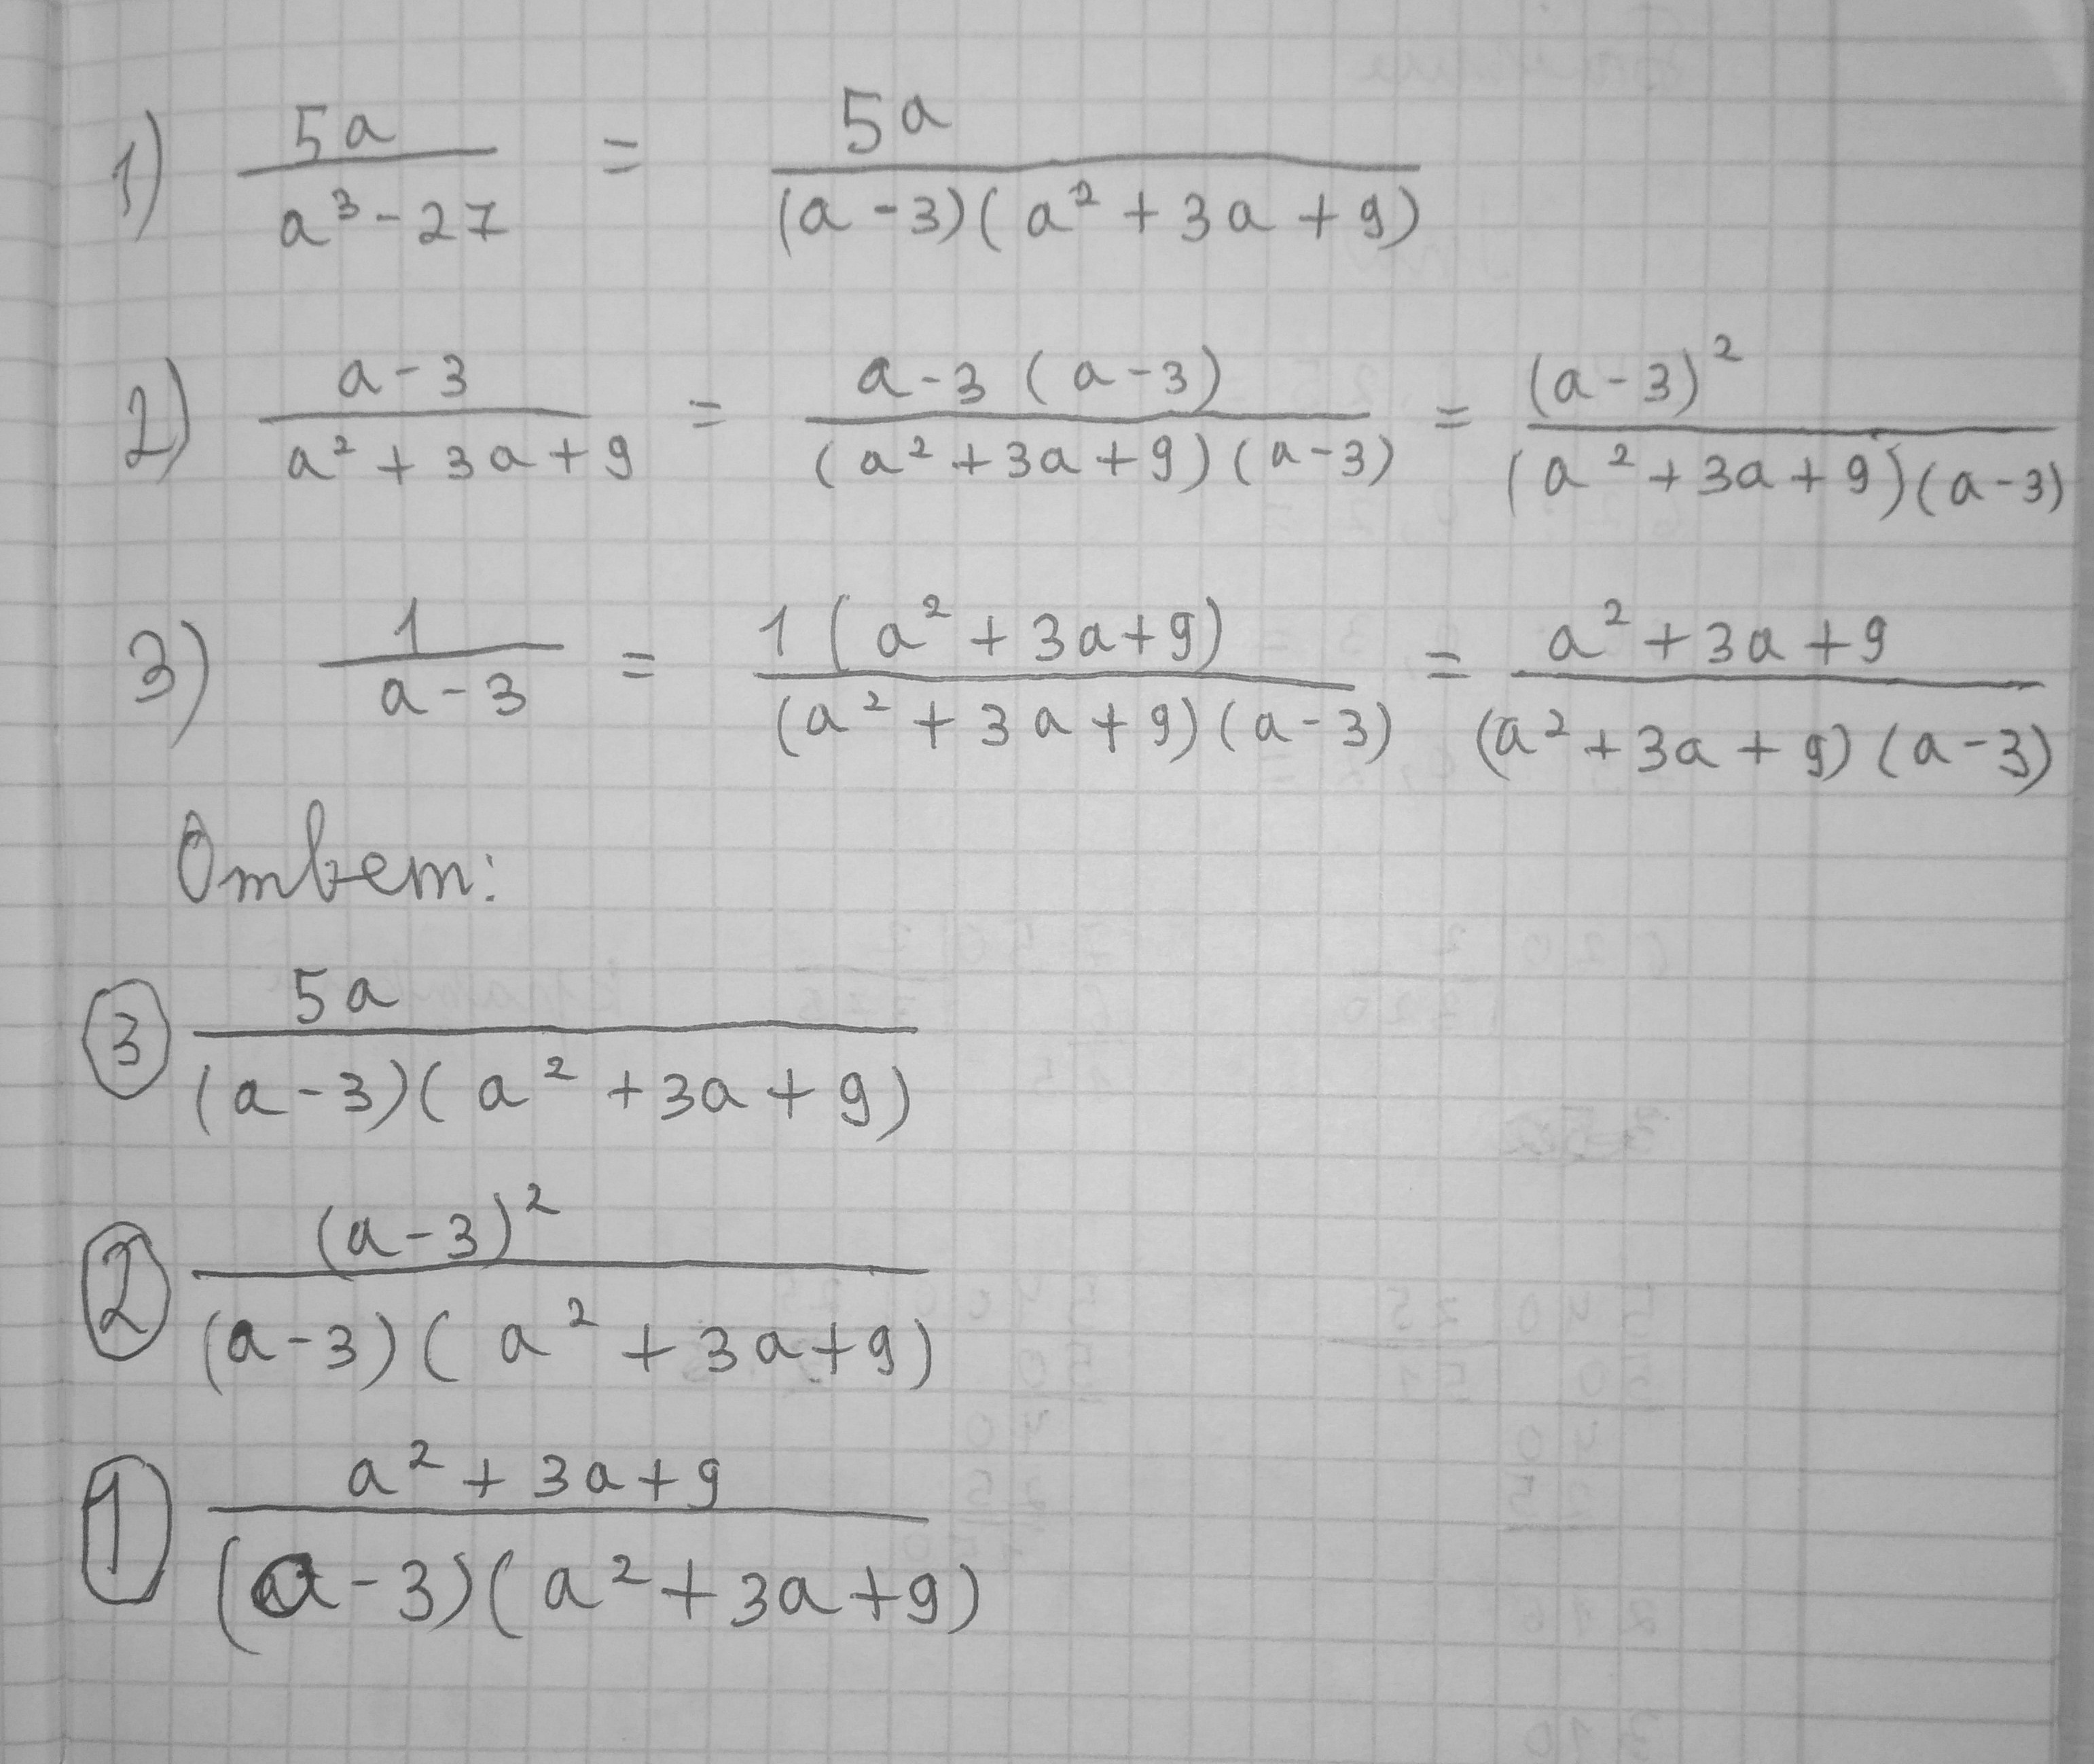 1) 5a / a³-27 = 5a / (a-3)(a²+3a+9)
2) a-3 / a²+3a+9 = a-3(a-3) / (a²+3a+9)(a-3) = (a-3)² / (a²+3a+9)(a-3)
3) 1 / a-3 = 1(a²+3a+9) / (a²+3a+9)(a-3) = a²+3a+9 / (a²+3a+9)(a-3)
Ответ:
③ 5a / (a-3)(a²+3a+9)
② (a-3)² / (a-3)(a²+3a+9)
① a²+3a+9 / (a-3)(a²+3a+9)